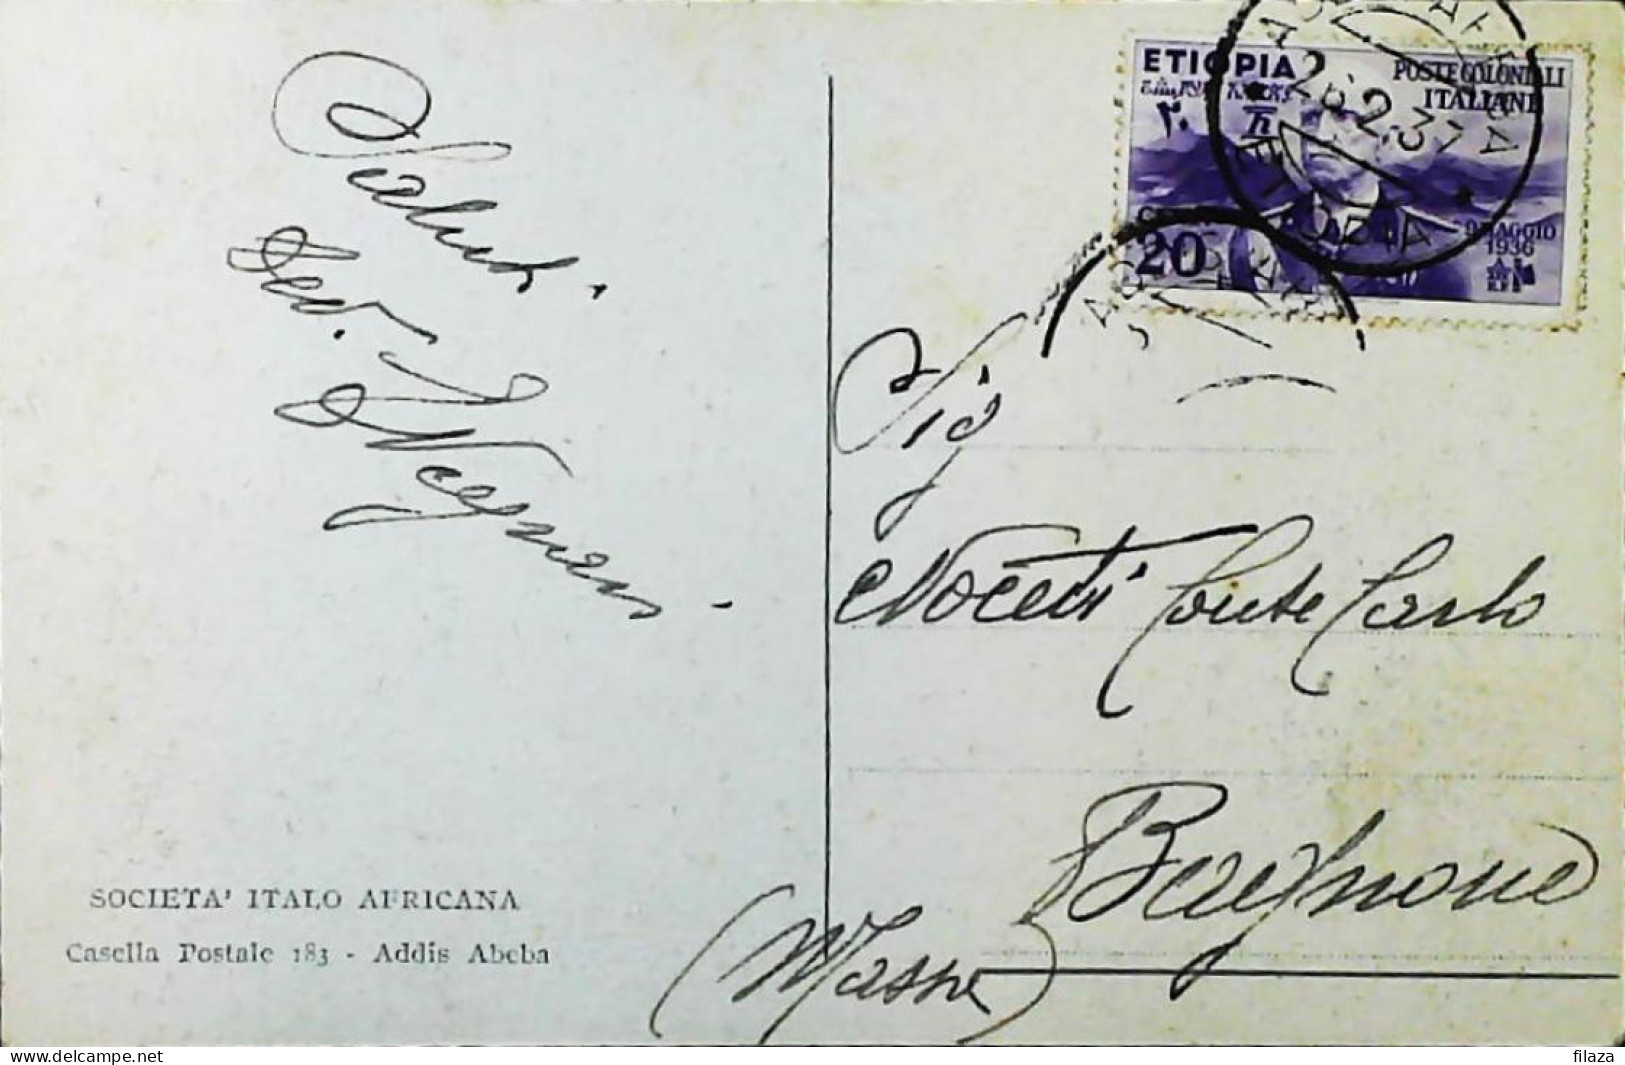 Saluti.
Dev.
ETIOPIA
POSTE COLONIALI
ITALIANE
20
9 MAGGIO
1936
ADDIS ABEBA
26.2.37
ETIOPIA
Sig
Noceti Conte Carlo
Bagnone
(Massa)
SOCIETA' ITALO AFRICANA
Casella Postale 183 - Addis Abeba
www.delcampe.net
filaza